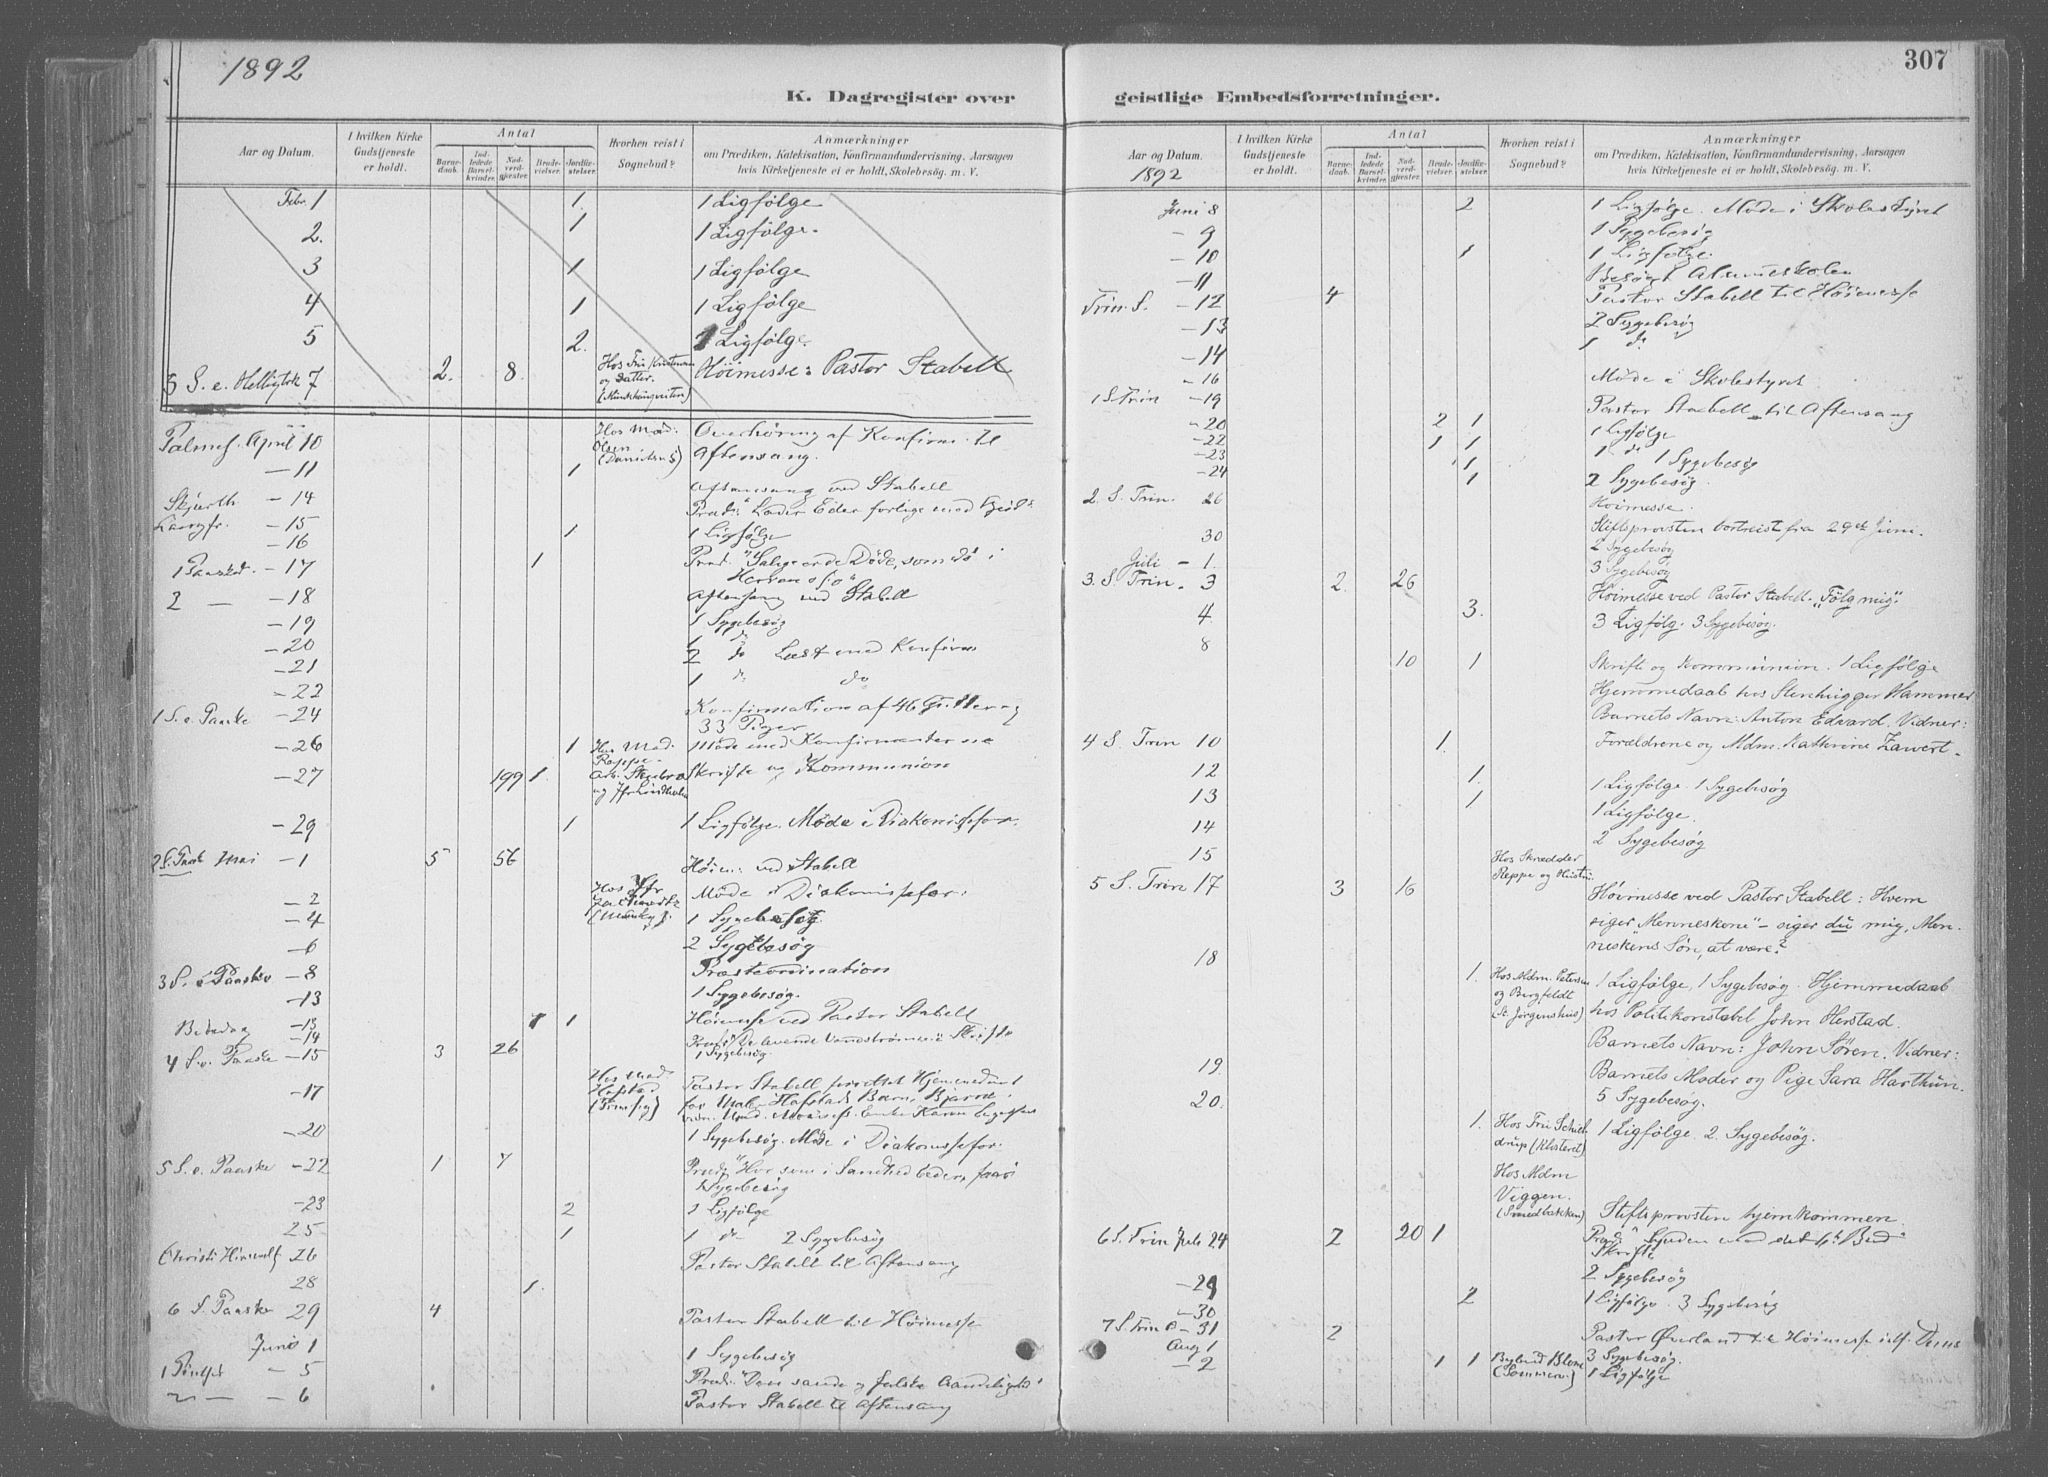 1892
307
K. Dagregister over geistlige Embedsforretninger.
Aar og Datum.
I hvilken Kirke Gudstjeneste er holdt.
Antal
Barnedaab.
Indledede Barselkvinder.
Nadverdgjester.
Brudevielser.
Jordfæstelser.
Hvorhen reist i Sognebud?
Anmærkninger
om Prædiken, Katekisation, Konfirmandundervisning, Aarsagen
hvis Kirketjeneste ei er holdt, Skolebesøg. m. V.
Febr. 1 1. 1 Ligfölge
2. 1 1 Ligfölge.
3 1 1 Ligfölge
4 1 1 Ligfölge
5 2. Ligfölge.
5 S. e. Helligtrk 7 2. 8. Hos Fru og Datter. Höimesse: Pastor Stabell
Palmes. April 10 Hos Mad. Olsen Overhöring af Konfirm. til
— 11 1 Aftensang.
Skjærth — 14 Aftensang ved Stabell
Langfr. — 15 Præd: "Lader Eder forlige med Gud"
— 16 1 1 Ligfölge
1 Paaskd. — 17 1 Præd. "Salige ere de Döde, som dö i
Herren"
2 — — 18 Aftensang ved Stabell
— 19 1 Sygebesög
— 20 1 do
— 21 2 do Læst med Konfirm
— 22 1 do do
1 S. e. Paaske — 24 Konfirmation af 46 Gutter og
33 Piger
— 26 1 Hos Mad. Reppe. Möde med Konfirmanterne
— 27 199 1. Skrifte og Kommunion
— 29 1 1 Ligfölge. Möde i Diakonissefor.
2 S. Paask Mai — 1 5 56 Höim: ved Stabell
— 2 Hos Möde i Diakonissefor:
— 4 1 Sygebesög
— 6 2 Sygebesög
3 S. e Paaske — 8 Præsteordination
— 13 1 Sygebesög.
Bededag — 13 1 1 Höimesse ved Pastor Stabell
— 14
4 S. e. Paaske — 15 3 26 1 Sygebesög.
— 17 Hos Mad. Hofstad Pastor Stabell forrettet Hjemmedaab
— 20 1 Sygebesög. Möde i Diakonissefor.
5 S. e. Paaske — 22 1 7 Præd: "Hvo som i Sandhed beder, faar"
Sygebesög
— 23 2 2 Ligfölge
25 1 1 do 2 Sygebesög
Christi Himmelf 26 Pastor Stabell til Aftensang
28 1.
6 S. Paaske 29 4 Pastor Stabell til Höimesse
Juni 1 1 Sygebesög
1 Pintsed — 5 Præd: "Den sande og falske Aandelighed"
2 — — 6 Pastor Stabell til Aftensang
Aar og Datum.
1892
I hvilken Kirke Gudstjeneste er holdt.
Antal
Barnedaab.
Indledede Barselkvinder.
Nadverdgjester.
Brudevielser.
Jordfæstelser.
Hvorhen reist i Sognebud?
Anmærkninger
om Prædiken, Katekisation, Konfirmandundervisning, Aarsagen
hvis Kirketjeneste ei er holdt, Skolebesøg. m. V.
Juni 8 2 1 Ligfölge. Möde i Skolestyret
— 9 1 Sygebesög
— 10 1 1 Ligfölge.
— 11 Besögt Almueskolen
Trin. S. — 12 4 Pastor Stabell til Höimesse
— 13 2 Sygebesög
— 14 1 do
— 16 Möde i Skolestyret
1 S. Trin — 19 Pastor Stabell til Aftensang
— 20 2 1 1 Ligfölge
— 22 1 1 1 do 1 Sygebesög
— 23 1
— 24 1 2 Sygebesög.
2. S. Trin. 26 Höimesse.
30 Stiftsprovsten bortreist fra 29de Juni.
2 Sygebesög
Juli — 1. 3 Sygebesög
3. S. Trin. 3 2. 26 Höimesse ved Pastor Stabell. "Fölg mig".
4 3. 3 Ligfölg. 3 Sygebesög.
8 10 1 Skrifte og Kommunion. 1 Ligfölge
Hjemmedaab hos Stenhugger Hammer
Barnets Navn: Anton Edvard. Vidner:
4 S. Trin 10 1. Forældrene og Mdm. Kathrine Zawert.
12 1. 1 Ligfölge. 1 Sygebesög
13 1 1 Ligfölge.
14 2 Sygebesög
15 Hos Skrædder Reppe og Hustru.
5 S. Trin 17 3 16 Höimesse ved Pastor Stabell: Hvem
siger Menneskene" – siger du mig, Men-
neskens Sön, at være?
18 1. Hos Mdm. Petersen og Bergfeldt (St. Jörgenshus) 1 Ligfölge, 1 Sygebesög. Hjemmedaab
hos Politikonstabel John Herstad.
Barnets Navn: John Sören. Vidner:
19. Barnets Moder og Pige Sara Harthun.
20. 5 Sygebesög.
1. Hos Fru Schieldrup (Klosteret) 1 Ligfölge. 2. Sygebesög.
Hos Mdm Viggen. (Smedbakken) Stiftsprovsten hjemkommen
6 S. Trin Juli 24 2 20 1 Præd: "Synden mod det 4de Bud"
Skrifte
— 29 2 Sygebesög
— 30 2 1 Ligfölge. 3 Sygebesög
7 S. Trin — 31 2 Pastor Øverland til Höimesse
Aug 1 3 Sygebesög.
— 2 1 1 1 Ligfölge